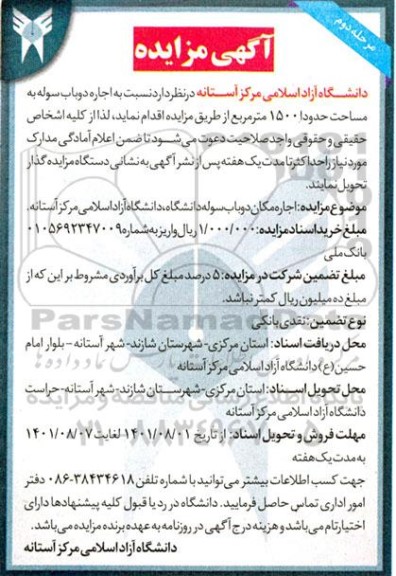 مرحله دوم
آگهی مزایده
دانشگاه آزاد اسلامی مرکز آستانه در نظر دارد نسبت به اجاره دو باب سوله به
مساحت حدودا ۱۵۰۰ مترمربع از طریق مزایده اقدام نماید، لذا از کلیه اشخاص
حقیقی و حقوقی واجد صلاحیت دعوت می‌شود تا ضمن اعلام آمادگی مدارک
مورد نیاز را حداکثر تا مدت یک هفته پس از نشر آگهی به نشانی دستگاه مزایده گذار
تحویل نمایند.
موضوع مزایده: اجاره مکان دو باب سوله دانشگاه، دانشگاه آزاد اسلامی مرکز آستانه.
مبلغ خرید اسناد مزایده: ۱/۰۰۰/۰۰۰ ریال واریز به شماره ۰۱۰۵۶۹۲۳۴۷۰۰۹
بانک ملی
مبلغ تضمین شرکت در مزایده: ۵ درصد مبلغ کل برآوردی مشروط بر این که از
مبلغ ده میلیون ریال کمتر نباشد.
نوع تضمین: نقدی بانکی
محل دریافت اسناد: استان مرکزی-شهرستان شازند-شهر آستانه - بلوار امام
حسین(ع) دانشگاه آزاد اسلامی مرکز آستانه
محل تحویل اسناد: استان مرکزی-شهرستان شازند-شهر آستانه-حراست
دانشگاه آزاد اسلامی مرکز آستانه
مهلت فروش و تحویل اسناد: از تاریخ ۱۴۰۱/۰۸/۰۱ لغایت ۱۴۰۱/۰۸/۰۷
به مدت یک هفته
جهت کسب اطلاعات بیشتر می‌توانید با شماره تلفن ۳۸۴۳۴۶۱۸-۰۸۶ دفتر
امور اداری تماس حاصل فرمایید. دانشگاه در رد یا قبول کلیه پیشنهادها دارای
اختیار تام می‌باشد و هزینه درج آگهی در روزنامه به عهده برنده مزایده می‌باشد.
دانشگاه آزاد اسلامی مرکز آستانه